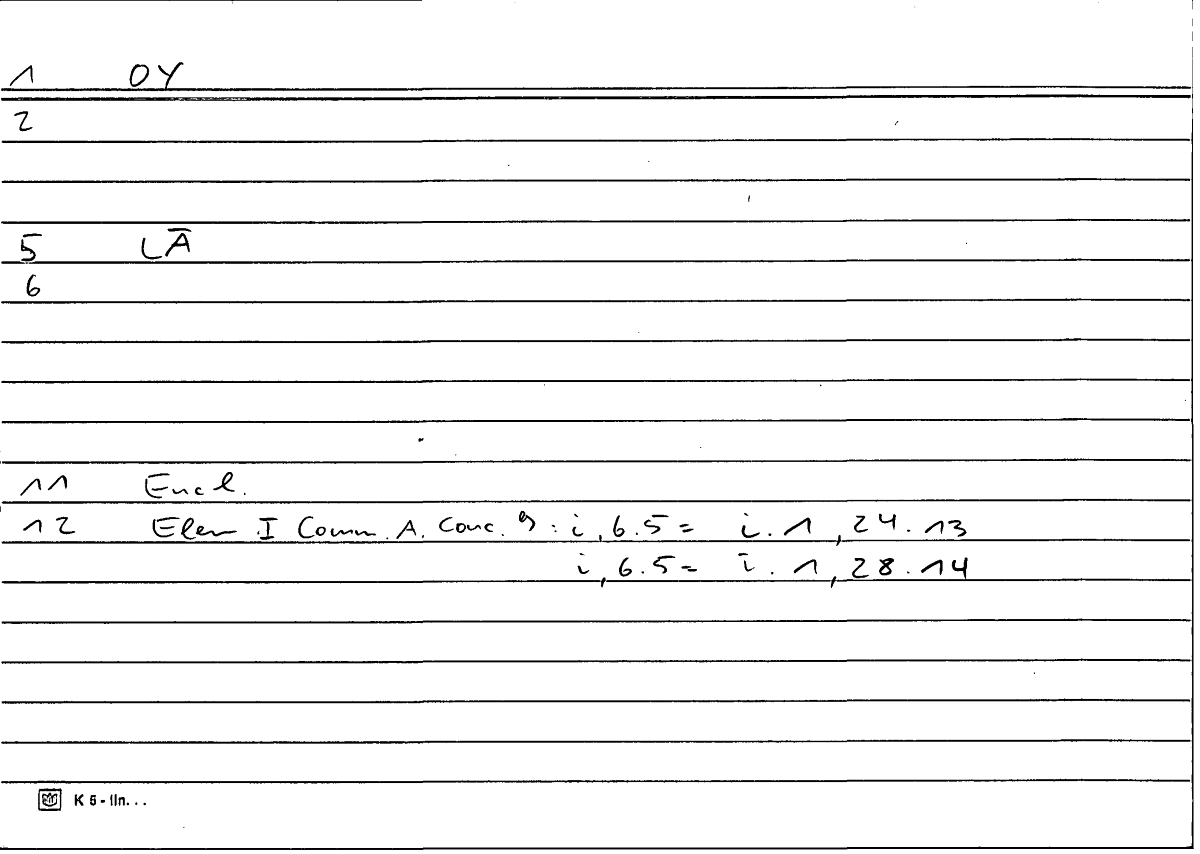 1 OY
2
5 LĀ
6
11 Eucl.
12 Elem I Comm. A. Conc. 9 : i, 6.5 = i. 1, 24. 13
i, 6.5 = i. 1, 28. 14
K 5 - lin...